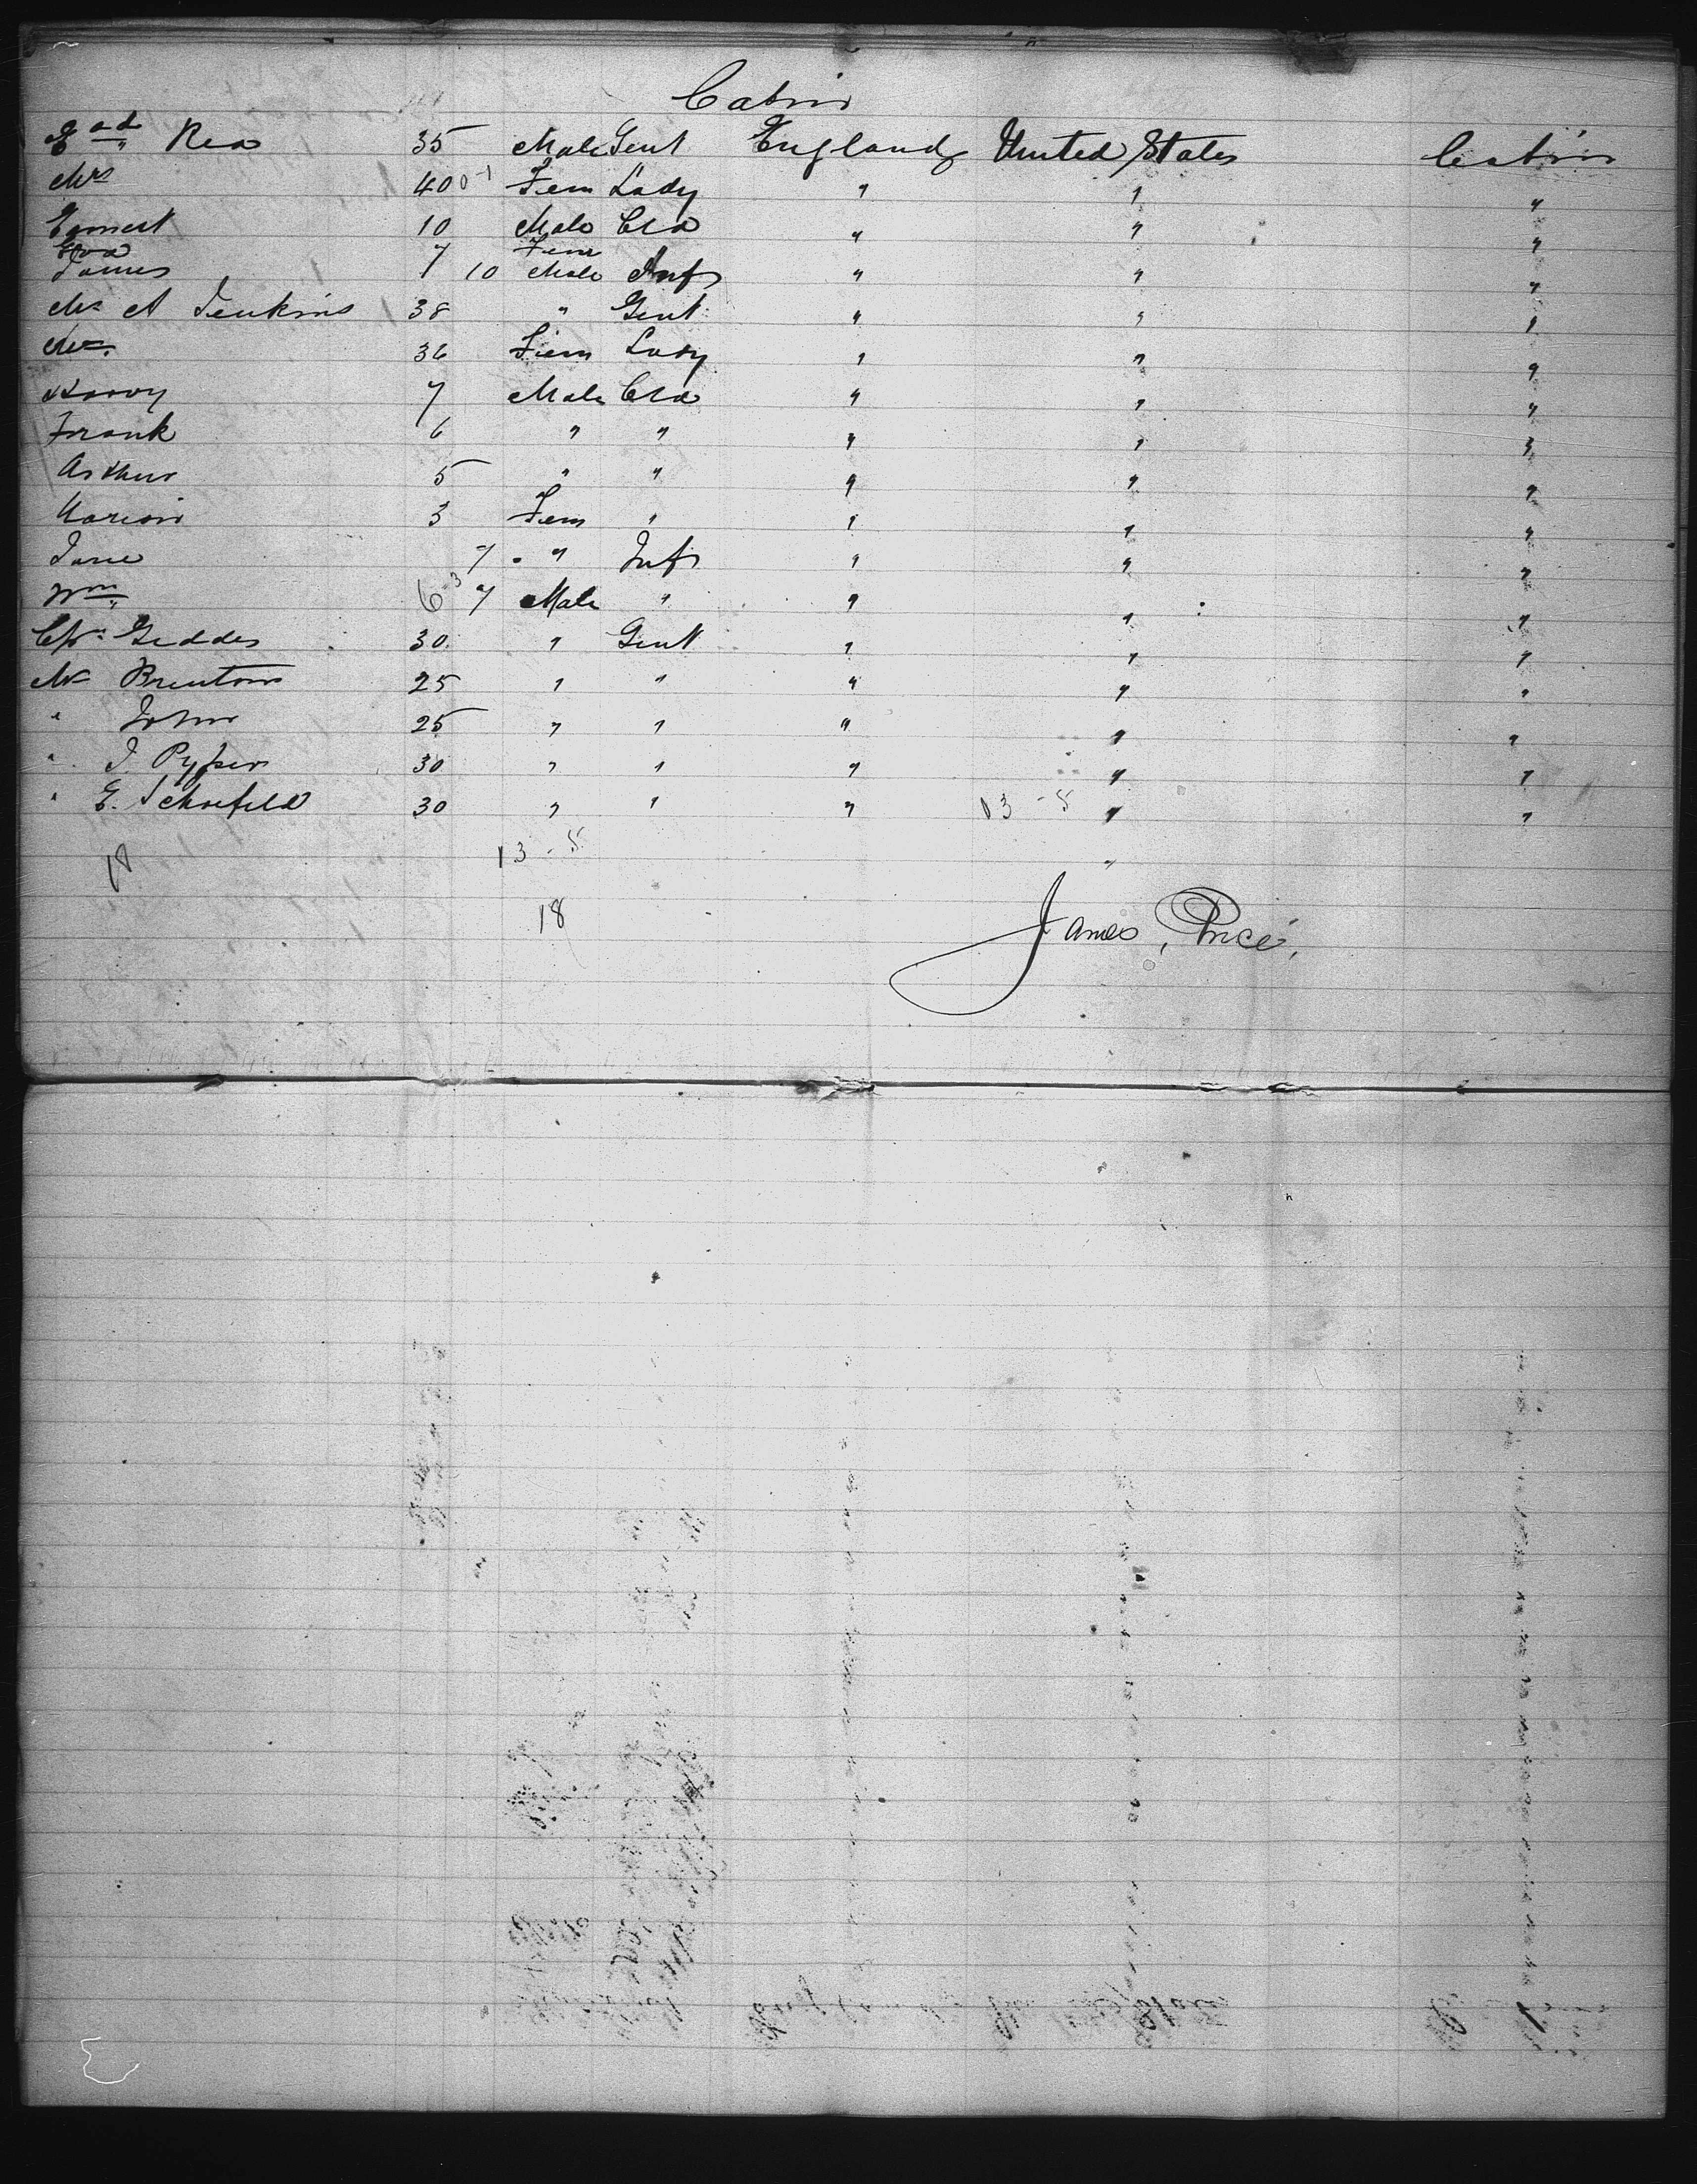 Cabin
E^ad Rea 35 Male Gent England United States Cabin
Mrs 40 0-1 Fem Lady " " "
Ernest 10 Male Cld " " "
Eva 7 Fem
James 10 Male Inft " " "
Mr A Jenkins 38 " Gent " " "
Mrs. 36 Fem Lady " " "
Harry 7 Male Cld " " "
Frank 6 " " " " "
Arthur 5 " " " " "
Marion 3 Fem " " " "
Jane 7 " Inft " " "
Wm 6-3 7 Male " " " "
Geddes 30 " Gent " " "
Mr Brenton 25 " " " " "
" John 25 " " " " "
" J Pyper 30 " " " " "
" E. Schofield 30 " " " 13-5 " "
18 13-5 "
18
James, Price,